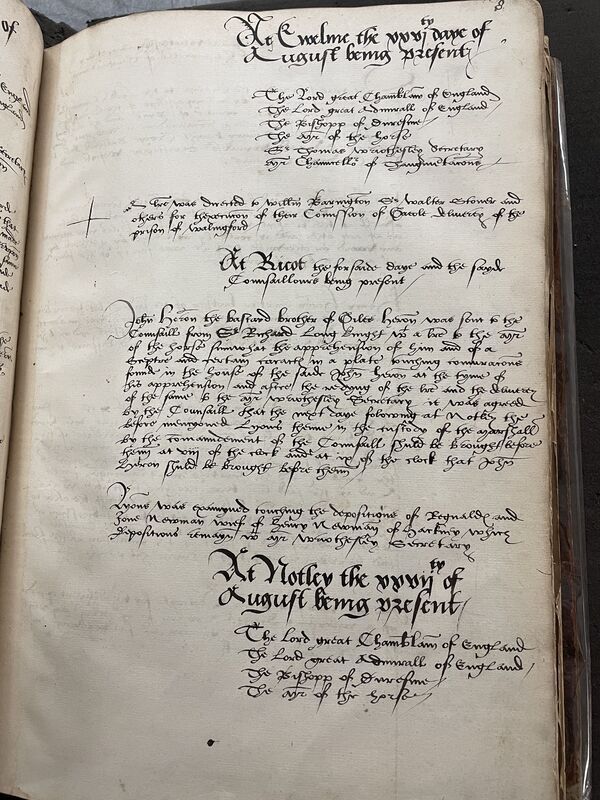 8
At Ewelme the xxvj ty daye of
August being present
The Lord great Chamblain of England
The Lord great Admirall of England
The Bishopp of Duresme
The Mr of the horse
Sr Thomas Wriothesley Secretary
Mr Chauncellor of Thaugmentacons
A lre was directed to Willm Barington Sr Walter Stoner and
others for thexecucion of their Comission of Gaole delivery of the
prison of Walingford
At Ricot the forsaide daye and the sayde
Counsaillours being present
John Heron the bastard brother of Giles Heron was sent to the
Counsaill from Sr Richard Long knight wt a lre to the Mr
of the horse the apprehension of him and of a
Sceptre and certain caracts in a plate touching coniuracons
founde in the house of the saide John heron at the tyme of
his apprehension and after the reding of the lre and the delivery
of the same to the Mr Wriothesley Secretary it was agreed
by the Counsaill that the next daye folowing at Notley the
before mencyoned Lyons theime in the custody of the Marshall
by the comaundement of the Counsaill shuld be brought before
them at viij of the clock and at ix of the clock that John
Heron shuld be brought before them
Lyons was examyned touching the depositions of Reignalde and
Jone Newman wief of Henry Newman of Hackney which
depositions remayn wt Mr Wriothesley Secretary
At Notley the xxvij ty of
August being present
The Lord great Chamblain of England
The Lord great Admirall of England
The Bishopp of Duresme
The Mr of the horse